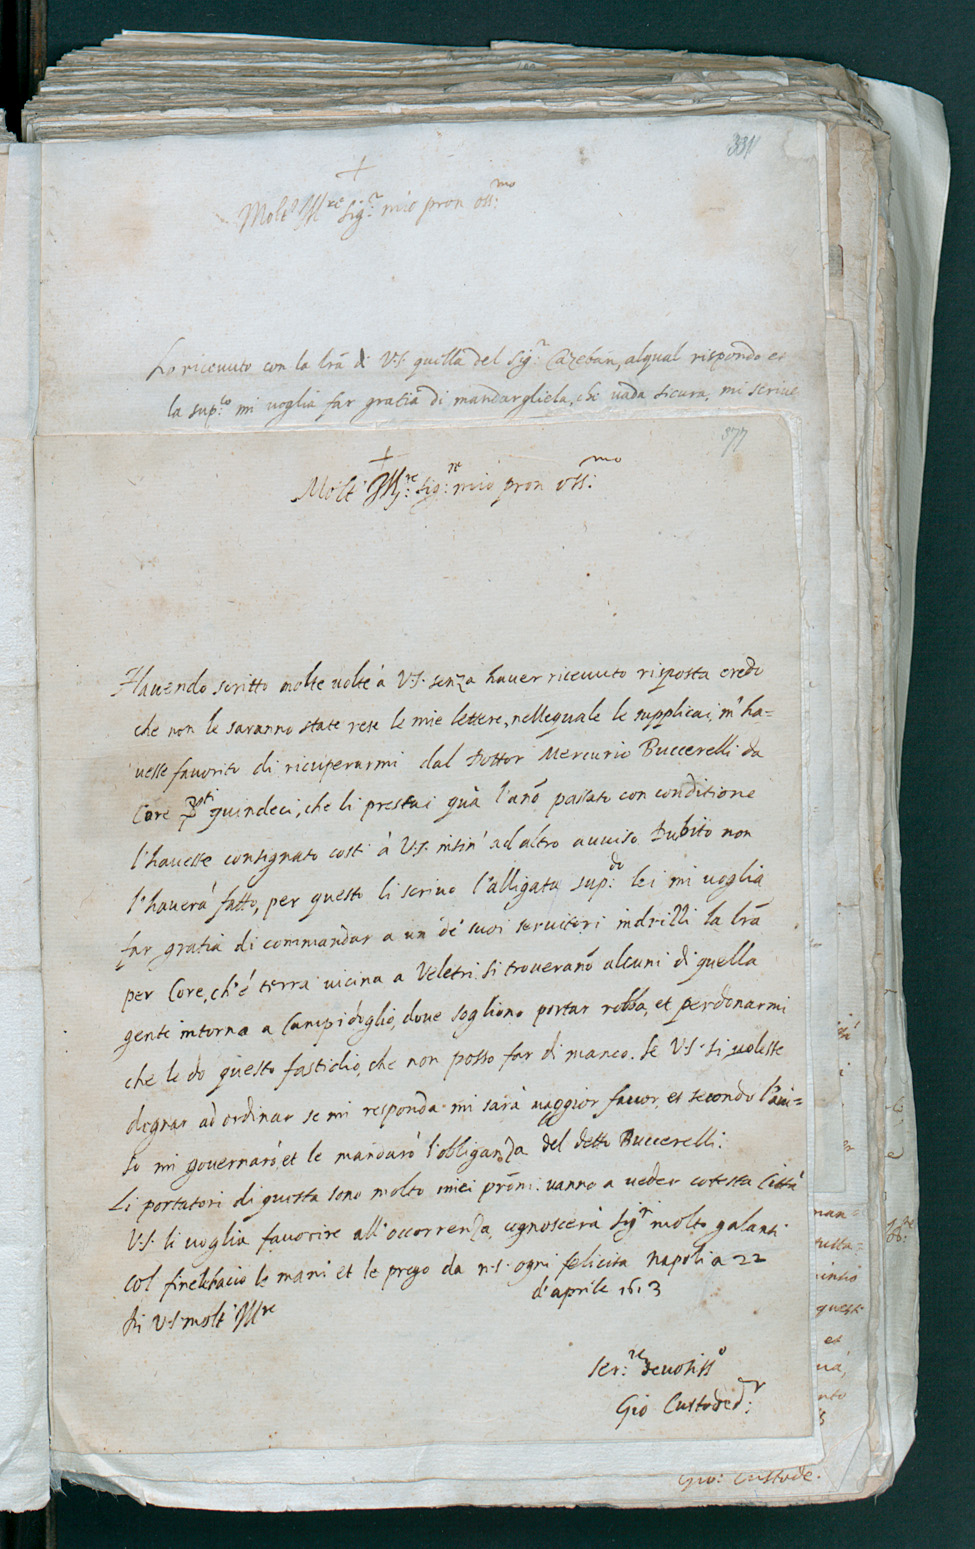 331
Molto Ill.re Sig.r mio pron oss.mo
Ho riceuuto con la lrã di V.S. quella del Sig.r Cazeban, alqual rispondo et
la sup.co mi uoglia far gratia di mandargliela, che uada sicura, mi scriue
377
Molt' Ill.re Sig.re mio pron oss.mo
Hauendo scritto molte uolte à V.S. senza hauer riceuuto risposta credo
che non le saranno state rese le mie lettere, nellequale le supplicai, m'ha=
uesse fauorito di ricuperarmi dal Dottor Mercurio Buccerelli da
Core quindeci, che li prestai quà l'anõ passato con conditione
l'hauesse consignato costi à V.S. insin' ad altro auuiso Dubito non
l'hauerà fatto, per questo li scriuo l'alligata sup.do lei mi uoglia
far gratia di commandar a un de suoi seruitori indrilli la lrã
per Core, ch'è terra uicina a Veletri. Si troueranõ alcuni di quella
gente intorno a Campidoglio, doue sogliono portar robba, et perdonarmi
che le do questo fastidio, che non posso far di manco. Se V.S. si uolesse
degnar ad ordinar se mi responda mi sarà maggior fauor, et secondo l'aui=
so mi gouernarò, et le mandarò l'obliganza del detto Buccerelli.
Li portatori di questa sono molto miei prõni. uanno a ueder cotesta Città
V.S. li uoglia fauorire all'occorrenza, cognoscerà Sig.ri molto galanti
Col fine bacio le mani et le prego da n.s. ogni felicita Napoli a 22
d'aprile 1613
Di V.S. molt' Ill.re
Ser.re deuotiss.o
Gio Custode d.r
nan=
tutta=
questi
et
Gio: Custode.